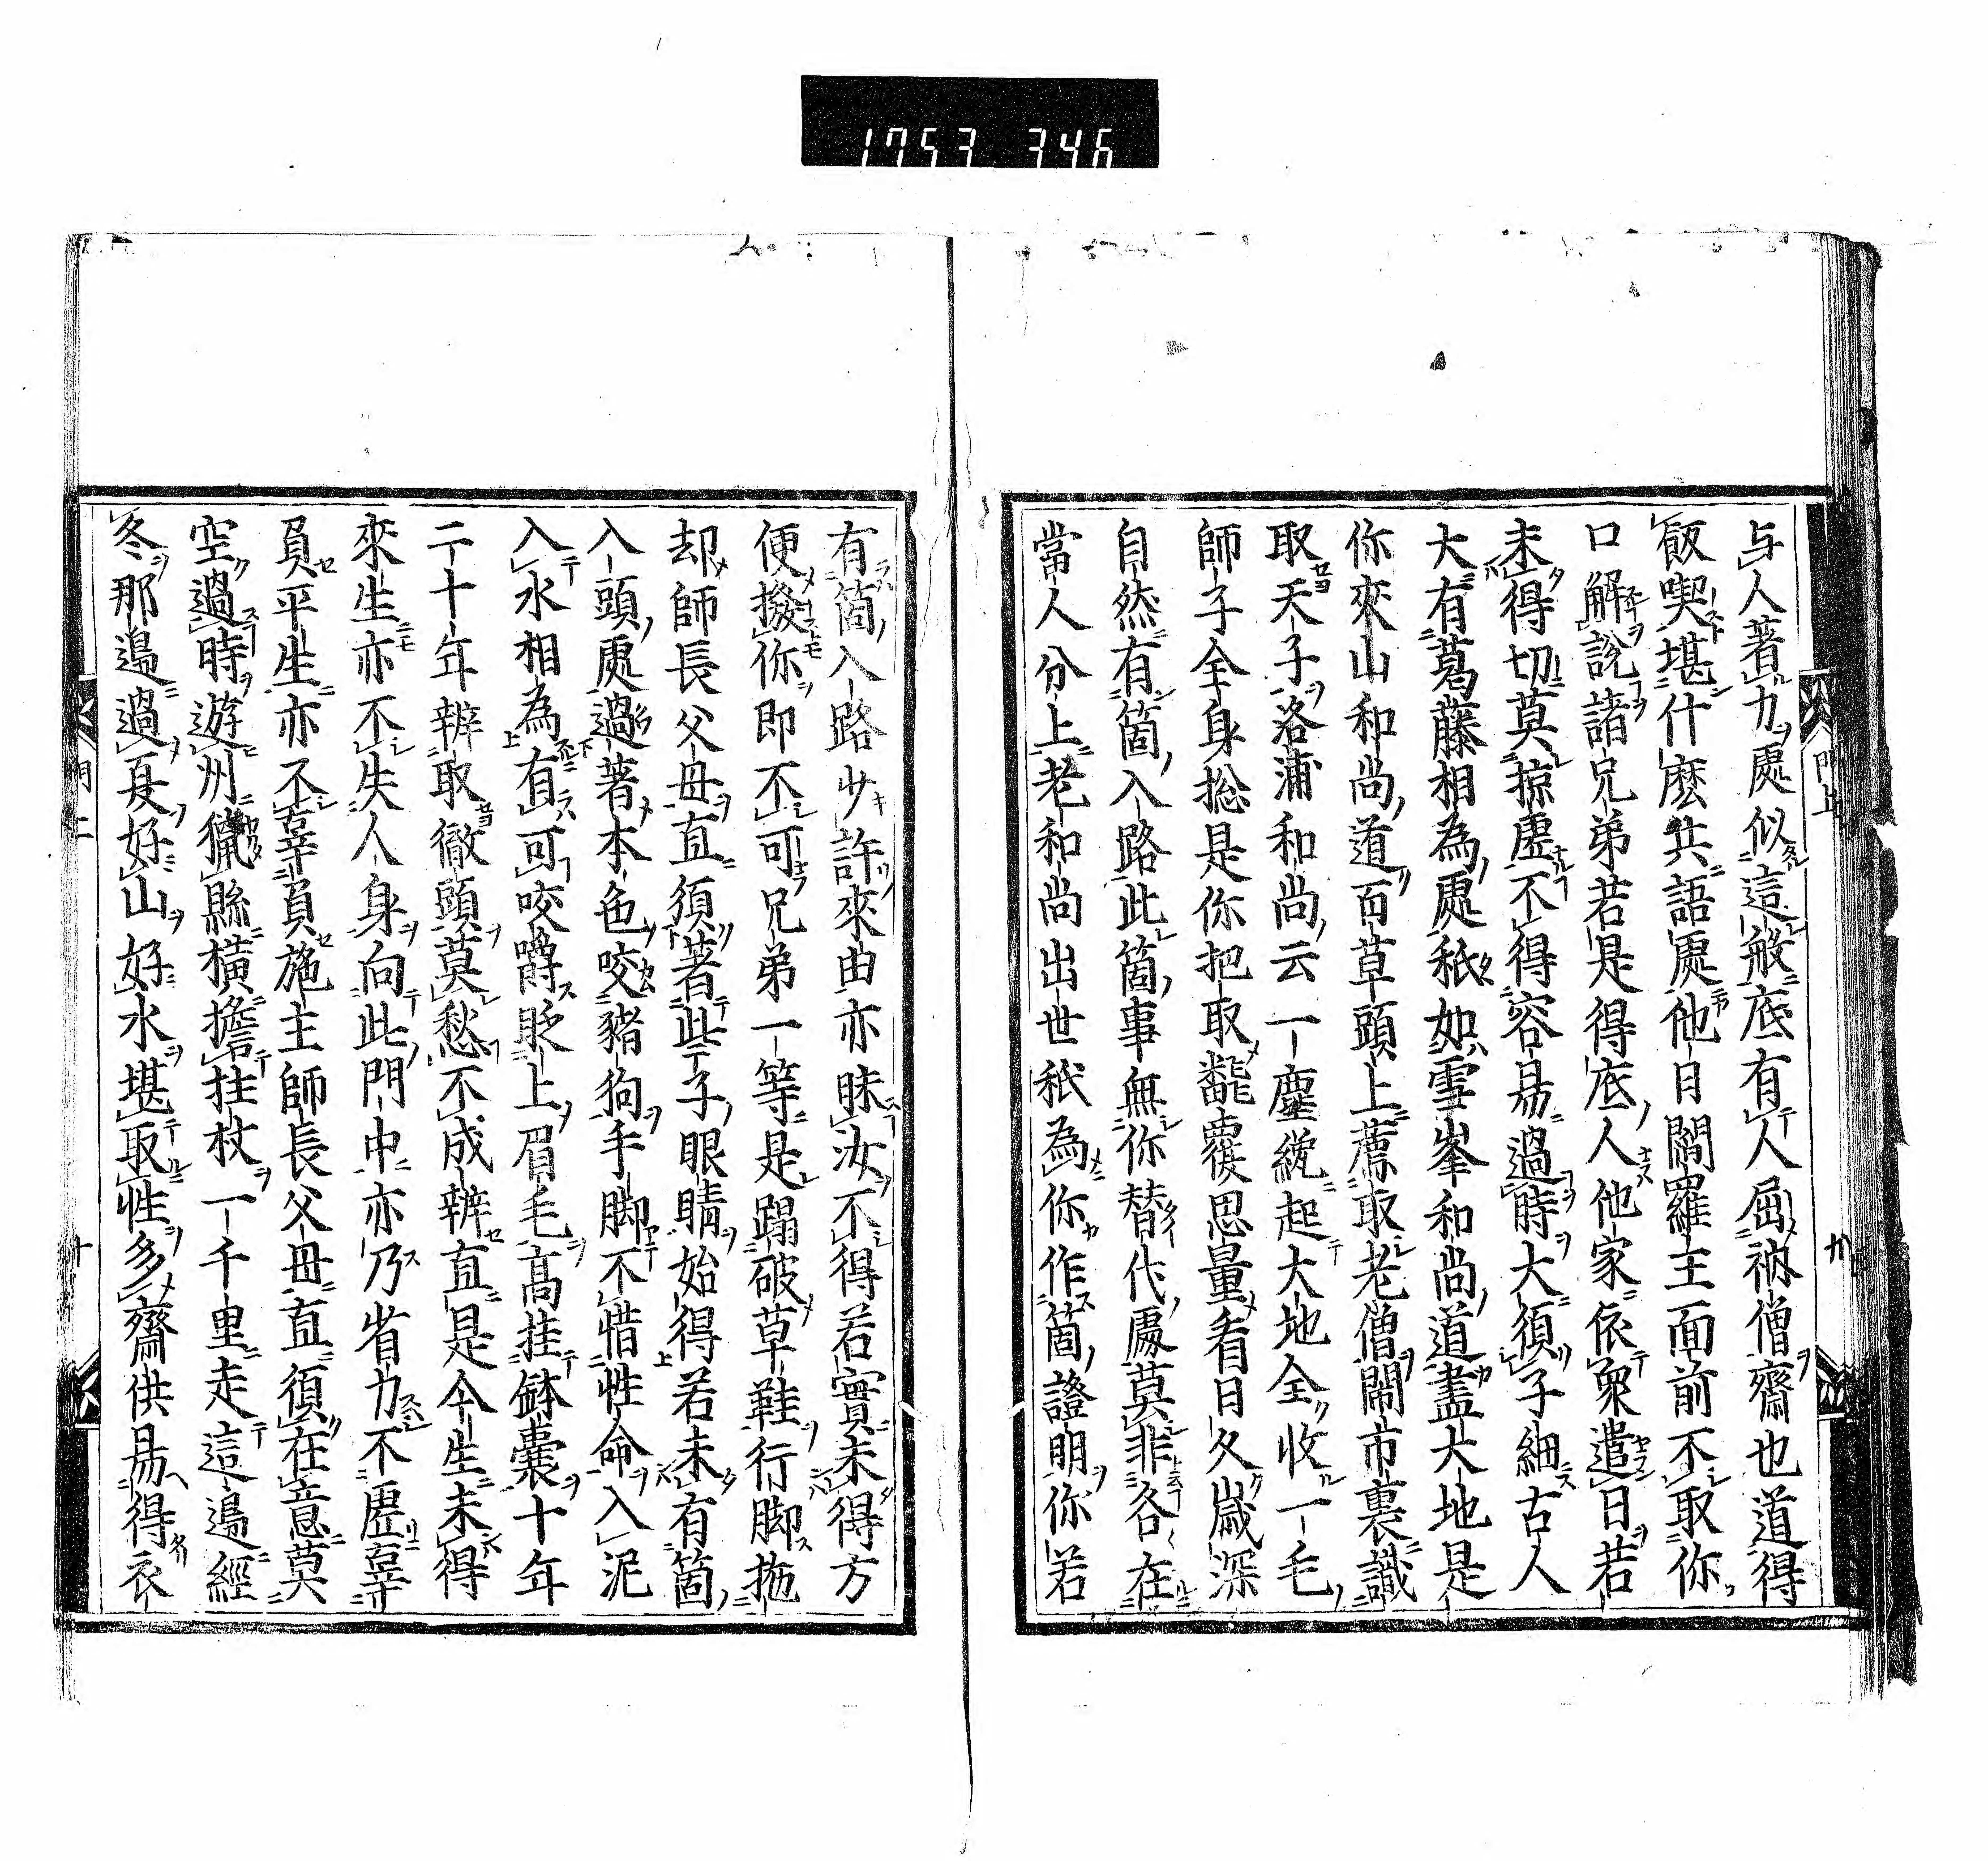 1753 346
与人著力處似這般底有人屈衲僧齋也道得
飯喫堪什麽共語處他日閻羅王面前不取你
口解說諸兄弟若是得底人他家依衆遣日若
未得切莫掠虛不得容易過時大須子細古人
大有葛藤相為處秖如雪峯和尚道盡大地是
你夾山和尚道百草頭上薦取老僧鬧市裏識
取天子洛浦和尚云一塵纔起大地全收一毛
師子全身総是你把取飜覆思量看日久歲深
自然有箇入路此箇事無你替代處莫非各在
當人分上老和尚出世秖為你作箇證明你若
有箇入路少許來由亦昧汝不得若實未得方
便撥你即不可兄弟一等是蹋破草鞋行脚抛
却師長父母直須著些子眼睛始得若未有箇
入頭處過著本色咬豬狗手脚不惜性命入泥
入水相為有可咬嚼眨上眉毛高挂鉢囊十年
二十年辨取徹頭莫愁不成辨直是今生未得
來生亦不失人身向此門中亦乃省力不虛辜
負平生亦不辜負施主師長父母直須在意莫
空過時遊州獵縣橫擔拄杖一千里走這邊經
冬那邊過夏好山好水堪取性多齋供易得衣
門上 九
門上 十